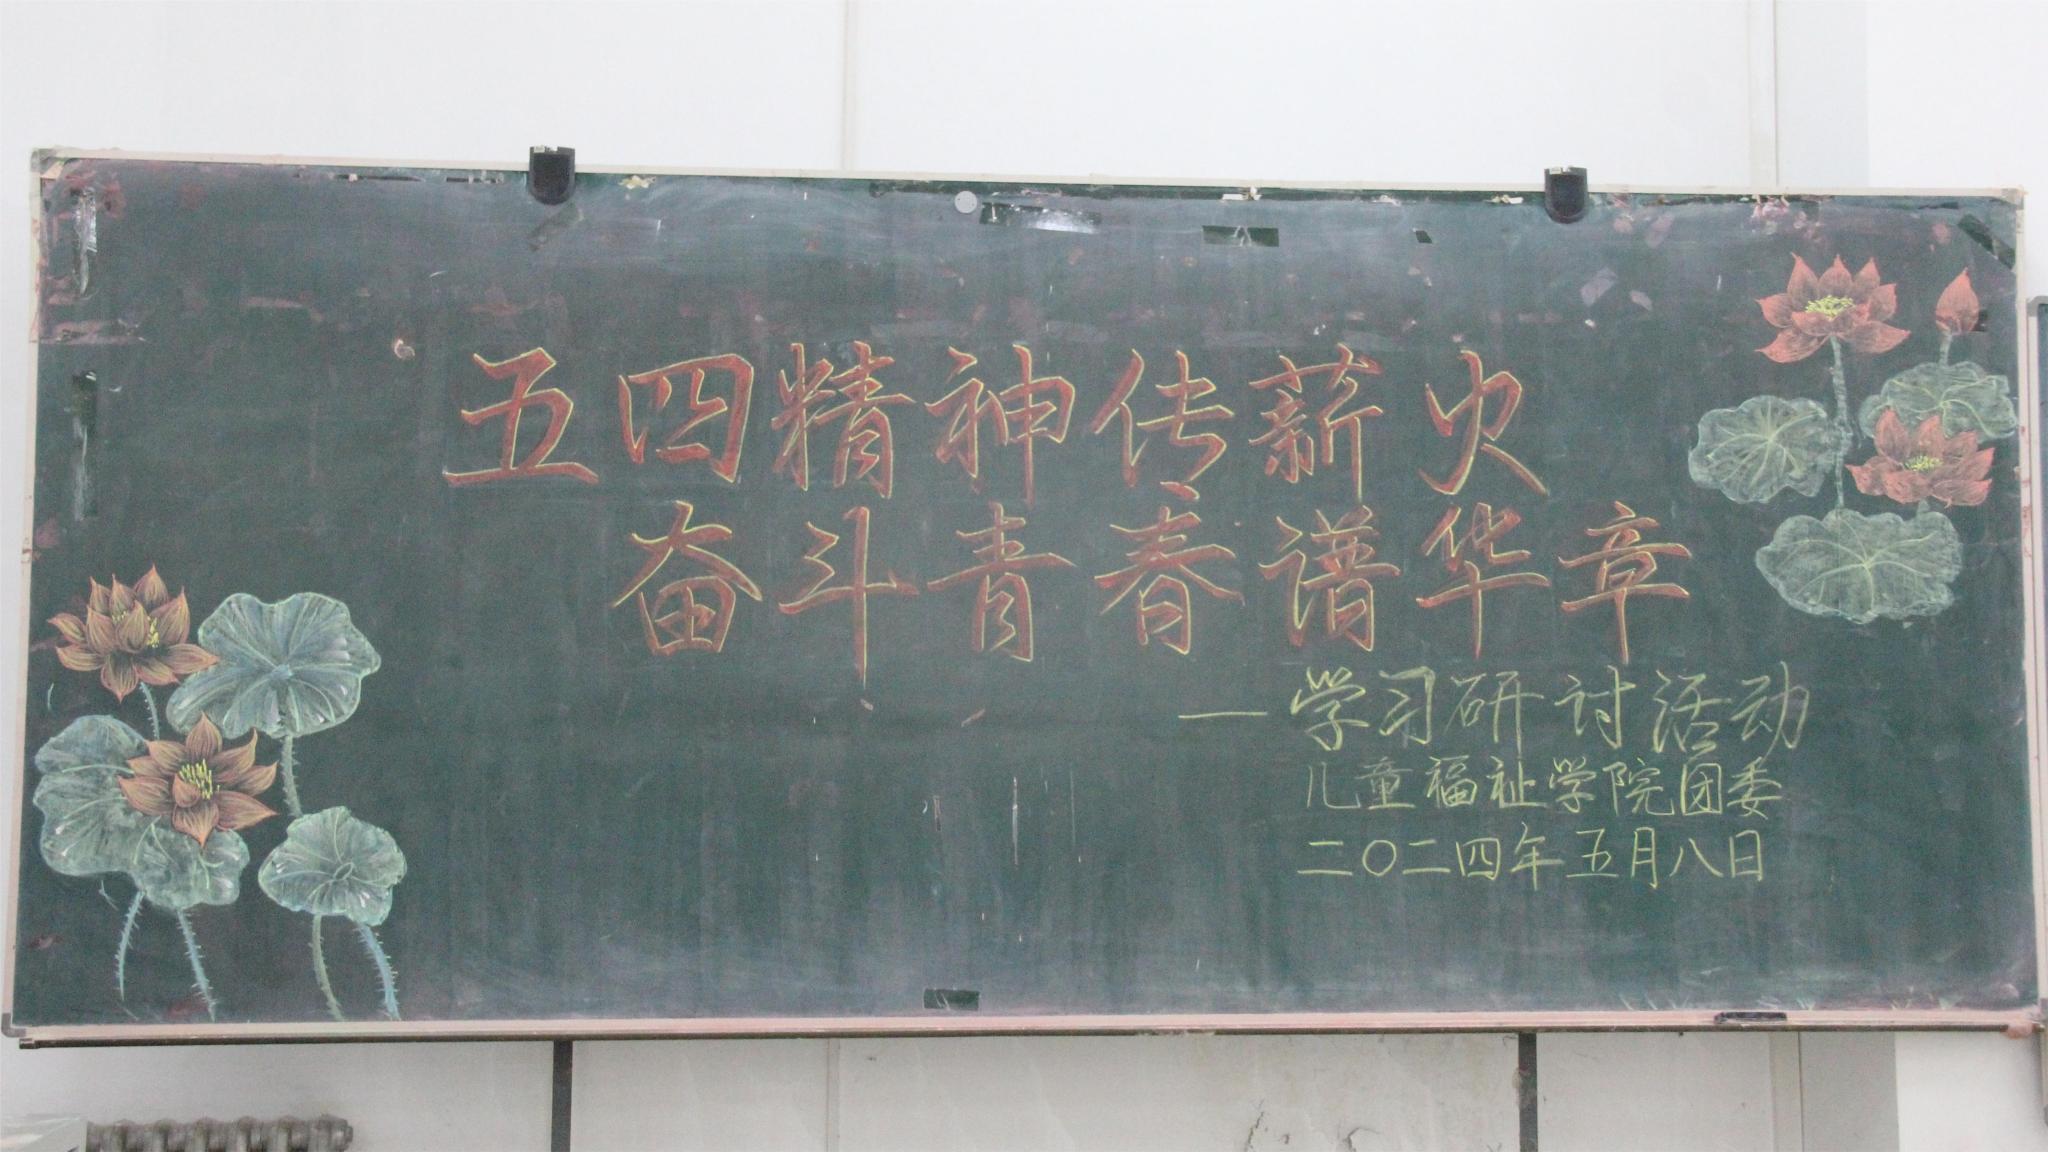 五四精神传薪火
奋斗青春谱华章
—学习研讨活动
儿童福祉学院团委
二〇二四年五月八日